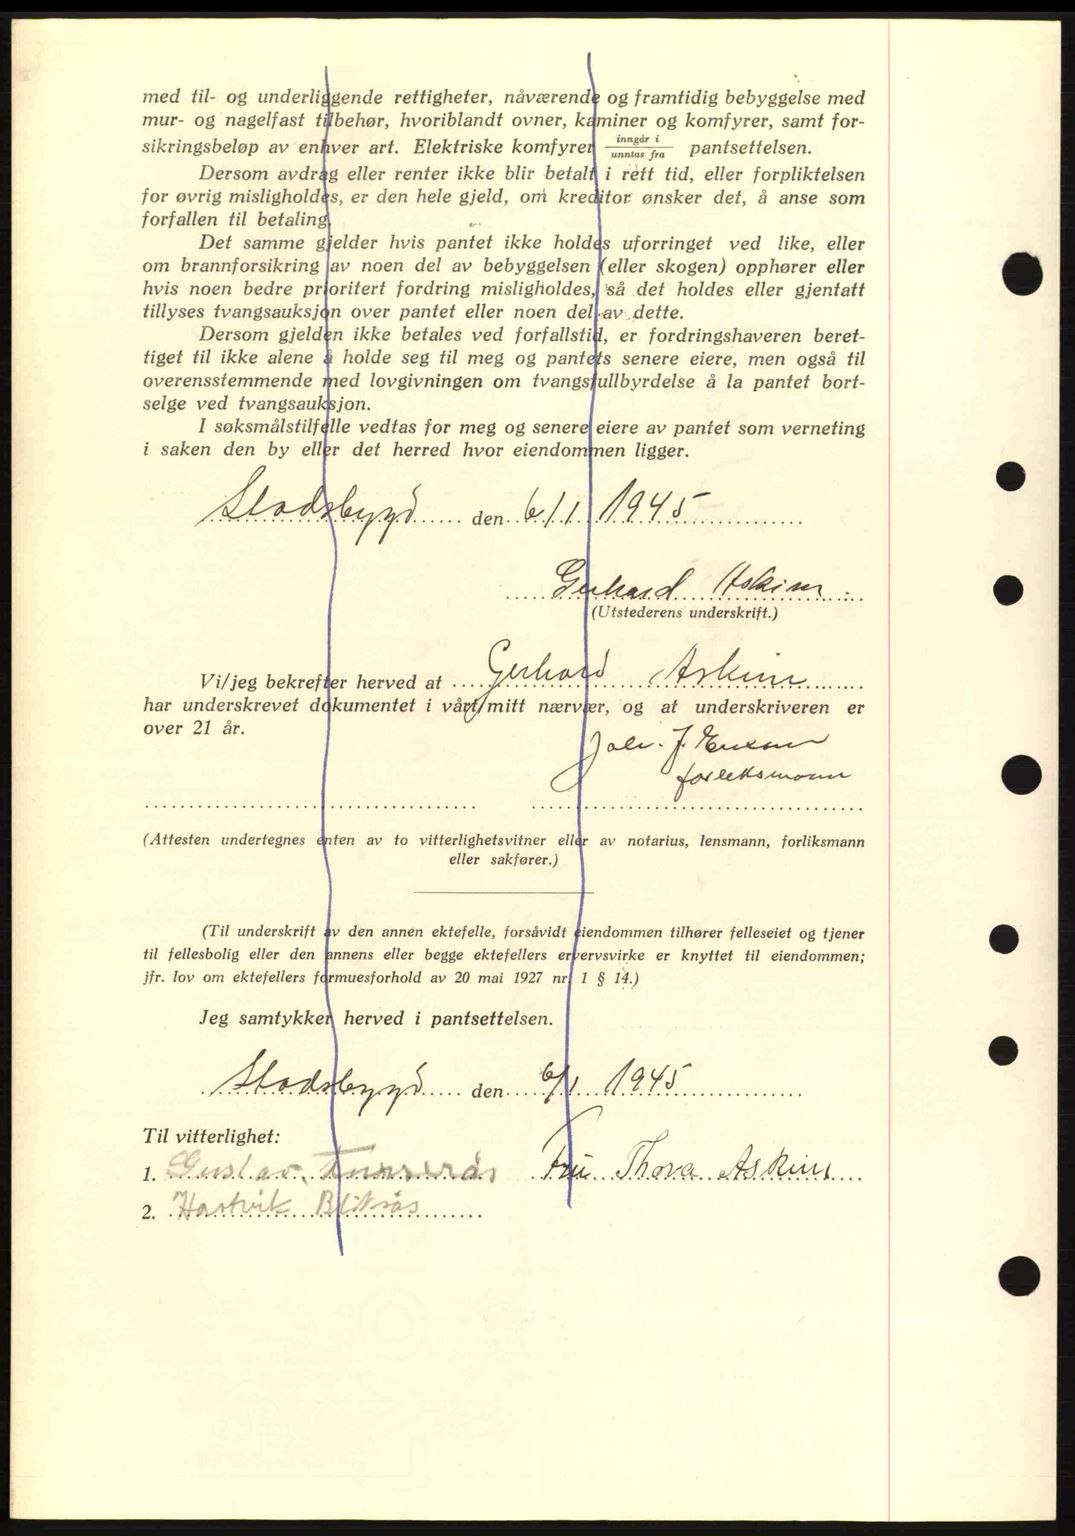 med til- og underliggende rettigheter, nåværende og framtidig bebyggelse med
mur- og nagelfast tilbehør, hvoriblandt ovner, kaminer og komfyrer, samt for-
sikringsbeløp av enhver art. Elektriske komfyrer inngår i / unntas fra pantsettelsen.
Dersom avdrag eller renter ikke blir betalt i rett tid, eller forpliktelsen
for øvrig misligholdes, er den hele gjeld, om kreditor ønsker det, å anse som
forfallen til betaling.
Det samme gjelder hvis pantet ikke holdes uforringet ved like, eller
om brannforsikring av noen del av bebyggelsen (eller skogen) opphører eller
hvis noen bedre prioritert fordring misligholdes, så det holdes eller gjentatt
tillyses tvangsauksjon over pantet eller noen del av dette.
Dersom gjelden ikke betales ved forfallstid, er fordringshaveren beret-
tiget til ikke alene å holde seg til meg og pantets senere eiere, men også til
overensstemmende med lovgivningen om tvangsfullbyrdelse å la pantet bort-
selge ved tvangsauksjon.
I søksmålstilfelle vedtas for meg og senere eiere av pantet som verneting
i saken den by eller det herred hvor eiendommen ligger.
Stadsbygd den 6/1 1945
Gerhard Askim
(Utstederens underskrift.)
Vi/jeg bekrefter herved at Gerhard Askim
har underskrevet dokumentet i vårt/mitt nærvær, og at underskriveren er
over 21 år.
J.
forliksmann
(Attesten undertegnes enten av to vitterlighetsvitner eller av notarius, lensmann, forliksmann
eller sakfører.)
(Til underskrift av den annen ektefelle, forsåvidt eiendommen tilhører felleseiet og tjener
til fellesbolig eller den annens eller begge ektefellers ervervsvirke er knyttet til eiendommen;
jfr. lov om ektefellers formuesforhold av 20 mai 1927 nr. 1 § 14.)
Jeg samtykker herved i pantsettelsen.
Stadsbygd den 6/1 1945
Til vitterlighet:
1. Gustav Fru Thora Askim
2. Hartvik Blikås